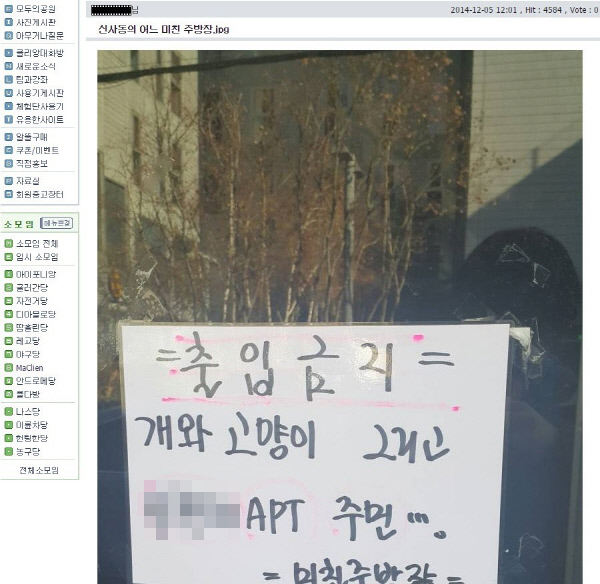 모두의공원
사진게시판
아무거나질문
클리앙대화방
새로운소식
팁과강좌
사용기게시판
체험단사용기
유용한사이트
알뜰구매
쿠폰/이벤트
직접홍보
자료실
회원중고장터
소모임
소모임 전체
임시 소모임
아이포니앙
굴러간당
자전거당
디아블로당
땀흘린당
레고당
야구당
MaClien
안드로메당
콜다방
나스당
이륜차당
헌팅한당
농구당
전체소모임
님 2014-12-05 12:01 , Hit : 4584 , Vote : 0
신사동의 어느 미친 주방장.jpg
=출입금지=
개와 고양이 그리고
APT 주민....
= 미친주방장 =